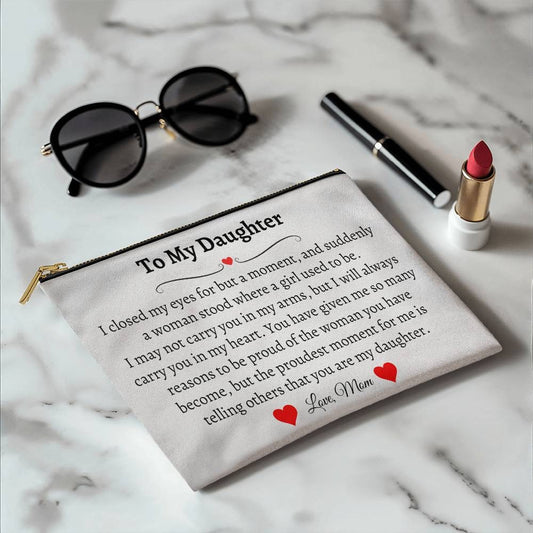 To My Daughter
I closed my eyes for but a moment, and suddenly
a woman stood where a girl used to be.
I may not carry you in my arms, but I will always
carry you in my heart. You have given me so many
reasons to be proud of the woman you have
become, but the proudest moment for me is
telling others that you are my daughter.
Love, Mom